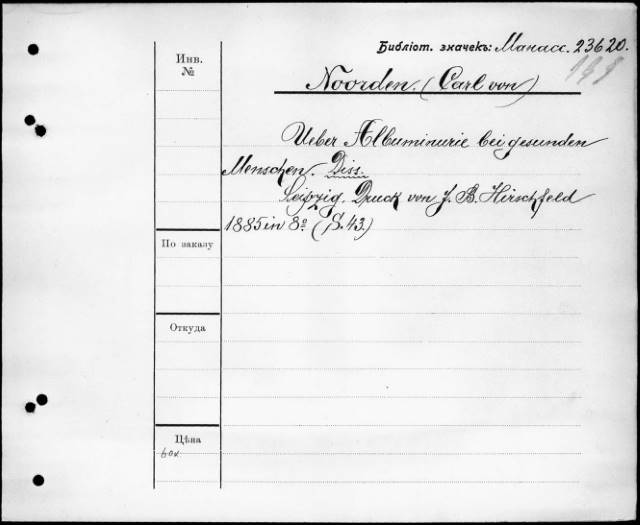 Библіот. значекъ: Манасс. 23620.
Инв.
№
Noorden. (Carl von)
Ueber Albuminurie bei gesunden
Menschen. Diss.
Leipzig. Druck von J. B. Hirschfeld
1885 in 8º (S. 43.)
По заказу
Откуда
Цѣна
60к